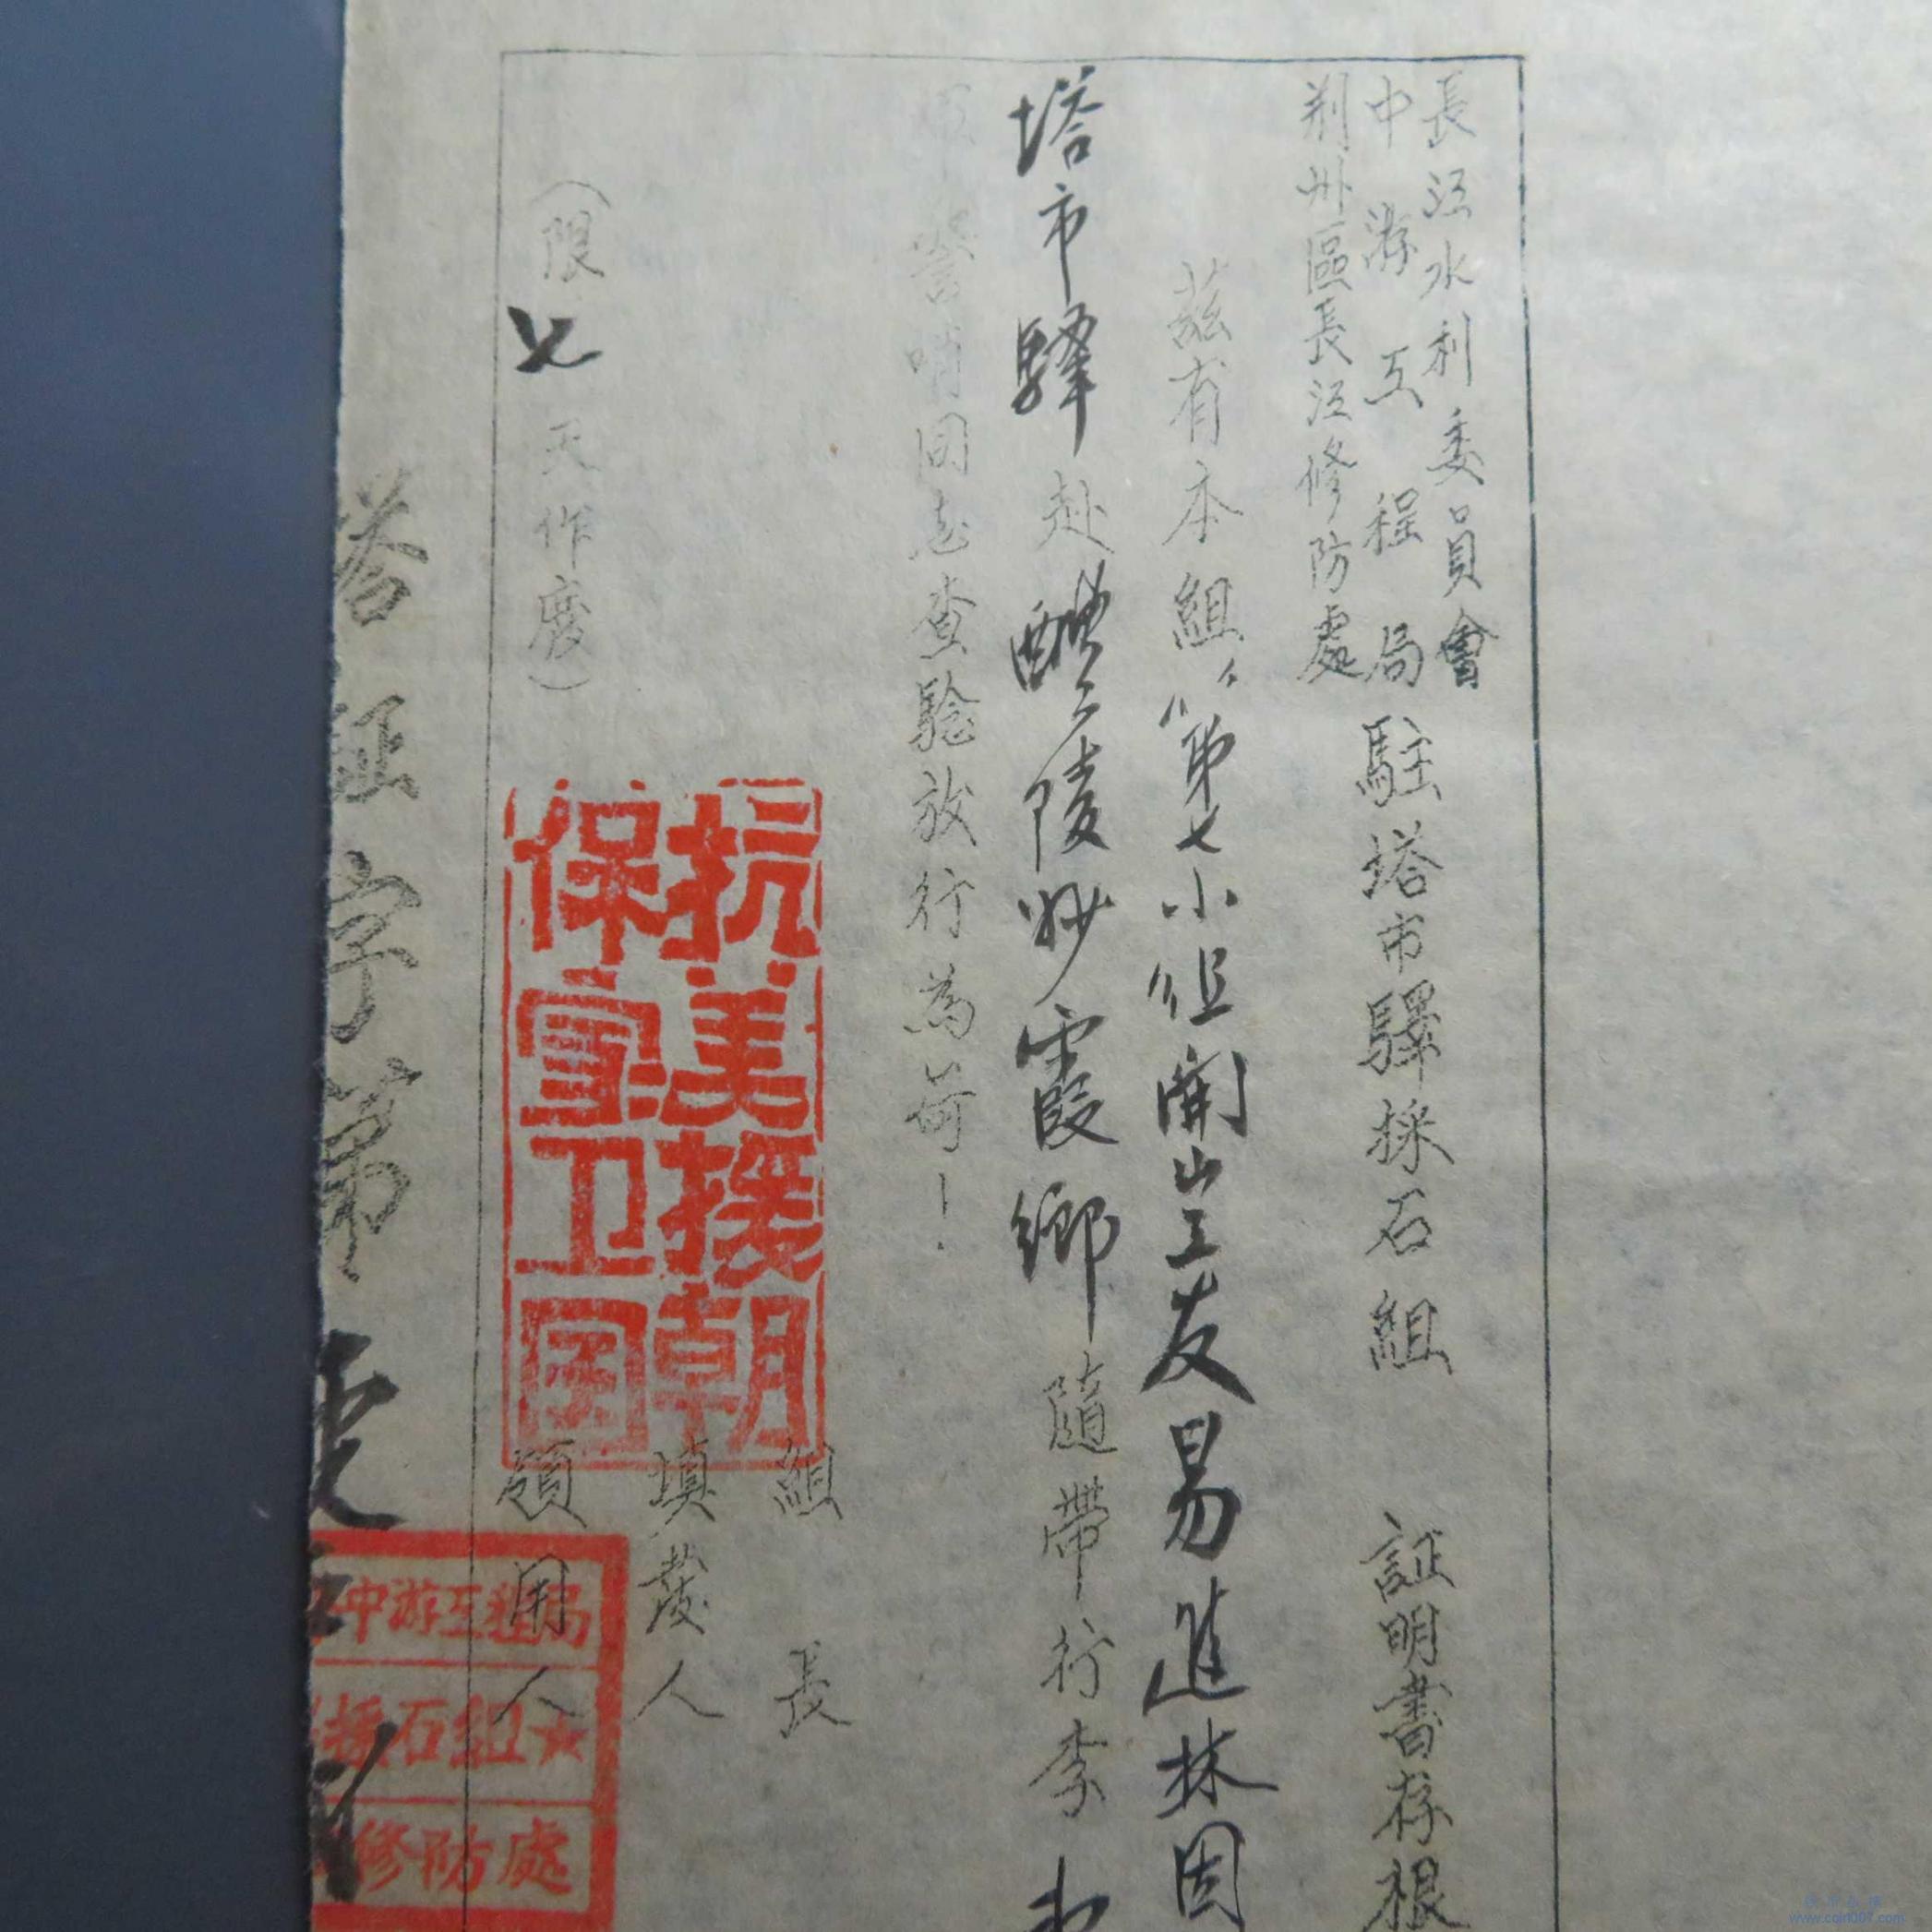 長江水利委員會
中游工程局
荆州區長江修防處
駐塔市驛採石組 証明書存根
茲有本組 第七小组開山工友易進林因
塔市驛赴醴陵妙霞鄉隨帶行李
警哨同志查驗放行為荷！
組長
填發人
領用人
（限 七 天作廢）
抗美援朝
保家卫国
塔証字第
中游工程局
採石組★
修防處
www.coin007.com